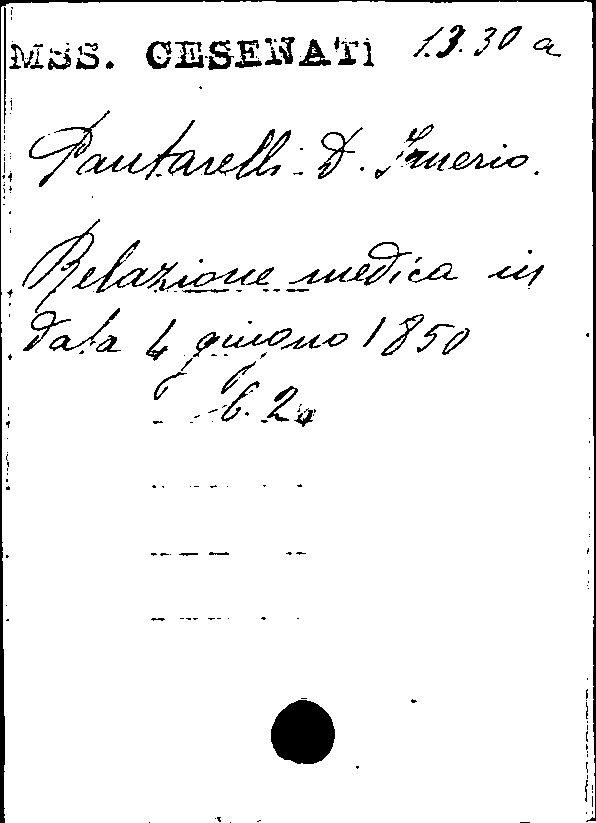 MSS. CESENATI 13.30 a
Pantarelli D. Irnerio.
Relazione medica in
data 4 giugno 1850